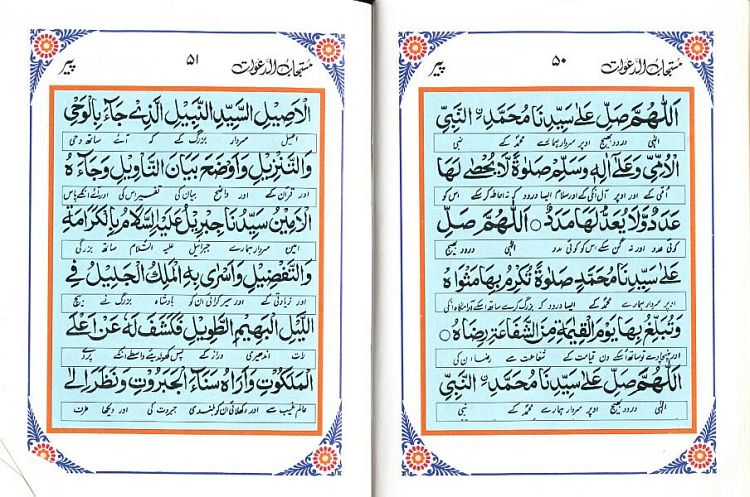 مستجاب الدعوات ۵۰ پیر
اَللّٰهُمَّ صَلِّ عَلٰى سَيِّدِنَا مُحَمَّدِ نِ النَّبِيِّ
الٰہی درود بھیج اوپر سردار ہمارے محمدؐ کے نبی
الْاُمِّيِّ وَعَلٰى اٰلِهٖ وَسَلِّمْ صَلٰوةً لَّا يُحْصٰى لَهَا
اُمّی کے اور اوپر آل انکی کے اور سلام ایسا درود کہ نہ احاطہ کر سکے اس کو
عَدَدٌ وَّلَا يُعَدُّ لَهَا مَدَدٌ ○ اَللّٰهُمَّ صَلِّ
کوئی عدد اور نہ گن سکے اس کو کوئی مدد الٰہی درود بھیج
عَلٰى سَيِّدِنَا مُحَمَّدٍ صَلٰوةً تُكْرِمُ بِهَا مَثْوَاهُ
اوپر سردار ہمارے محمدؐ کے ایسا درود کہ بزرگ کرے ساتھ اسکے آرامگاہ انکی
وَتُبَلِّغُ بِهَا يَوْمَ الْقِيٰمَةِ مِنَ الشَّفَاعَةِ رِضَاهُ ○
اور پہنچا دے تو ساتھ اسکے دن قیامت کے شفاعت سے رضا ان کی
اَللّٰهُمَّ صَلِّ عَلٰى سَيِّدِنَا مُحَمَّدِ نِ النَّبِيِّ
الٰہی درود بھیج اوپر سردار ہمارے محمدؐ کے نبی
مستجاب الدعوات ۵۱ پیر
الْاَصِيْلِ السَّيِّدِ النَّبِيْلِ الَّذِيْ جَآءَ بِالْوَحْيِ
اصیل سردار بزرگ کے کہ آئے ساتھ وحی
وَالتَّنْزِيْلِ وَاَوْضَحَ بَيَانَ التَّاْوِيْلِ وَجَآءَهُ
اور قرآن کے اور واضح بیان کی تفسیر اس کی اور آئے انکے پاس
الْاَمِيْنُ سَيِّدُنَا جِبْرِيْلُ عَلَيْهِ السَّلَامُ بِالْكَرَامَةِ
امین سردار ہمارے جبرائیل علیہ السلام ساتھ بزرگی
وَالتَّفْضِيْلِ وَاَسْرٰى بِهِ الْمَلِكُ الْجَلِيْلُ فِي
اور زیادتی کے اور سیر کرائی ان کو بادشاہ بزرگ نے بیچ
اللَّيْلِ الْبَهِيْمِ الطَّوِيْلِ فَكَشَفَ لَهٗ عَنْ اَعْلَى
رات اندھیری دراز کے پس کھول دیئے واسطے انکے پردے
الْمَلَكُوْتِ وَاَرَاهُ سَنَآءَ الْجَبَرُوْتِ وَنَظَرَ اِلٰى
عالم غیب سے اور دکھلائی ان کو بلندی جبروت کی اور دیکھا طرف